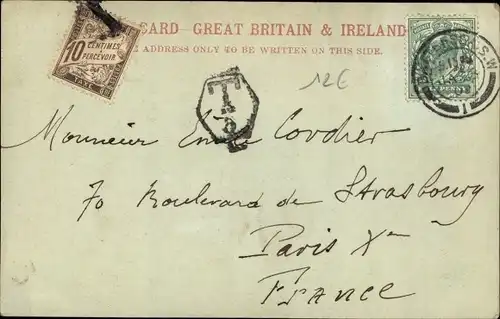 CARD GREAT BRITAIN & IRELAND
E ADDRESS ONLY TO BE WRITTEN ON THIS SIDE.
10
CENTIMES
À
PERCEVOIR
TAXE
T
12€
PENNY
S.W
1
Monsieur Emile Cordier
70 Boulevard de Strasbourg
Paris Xe
France